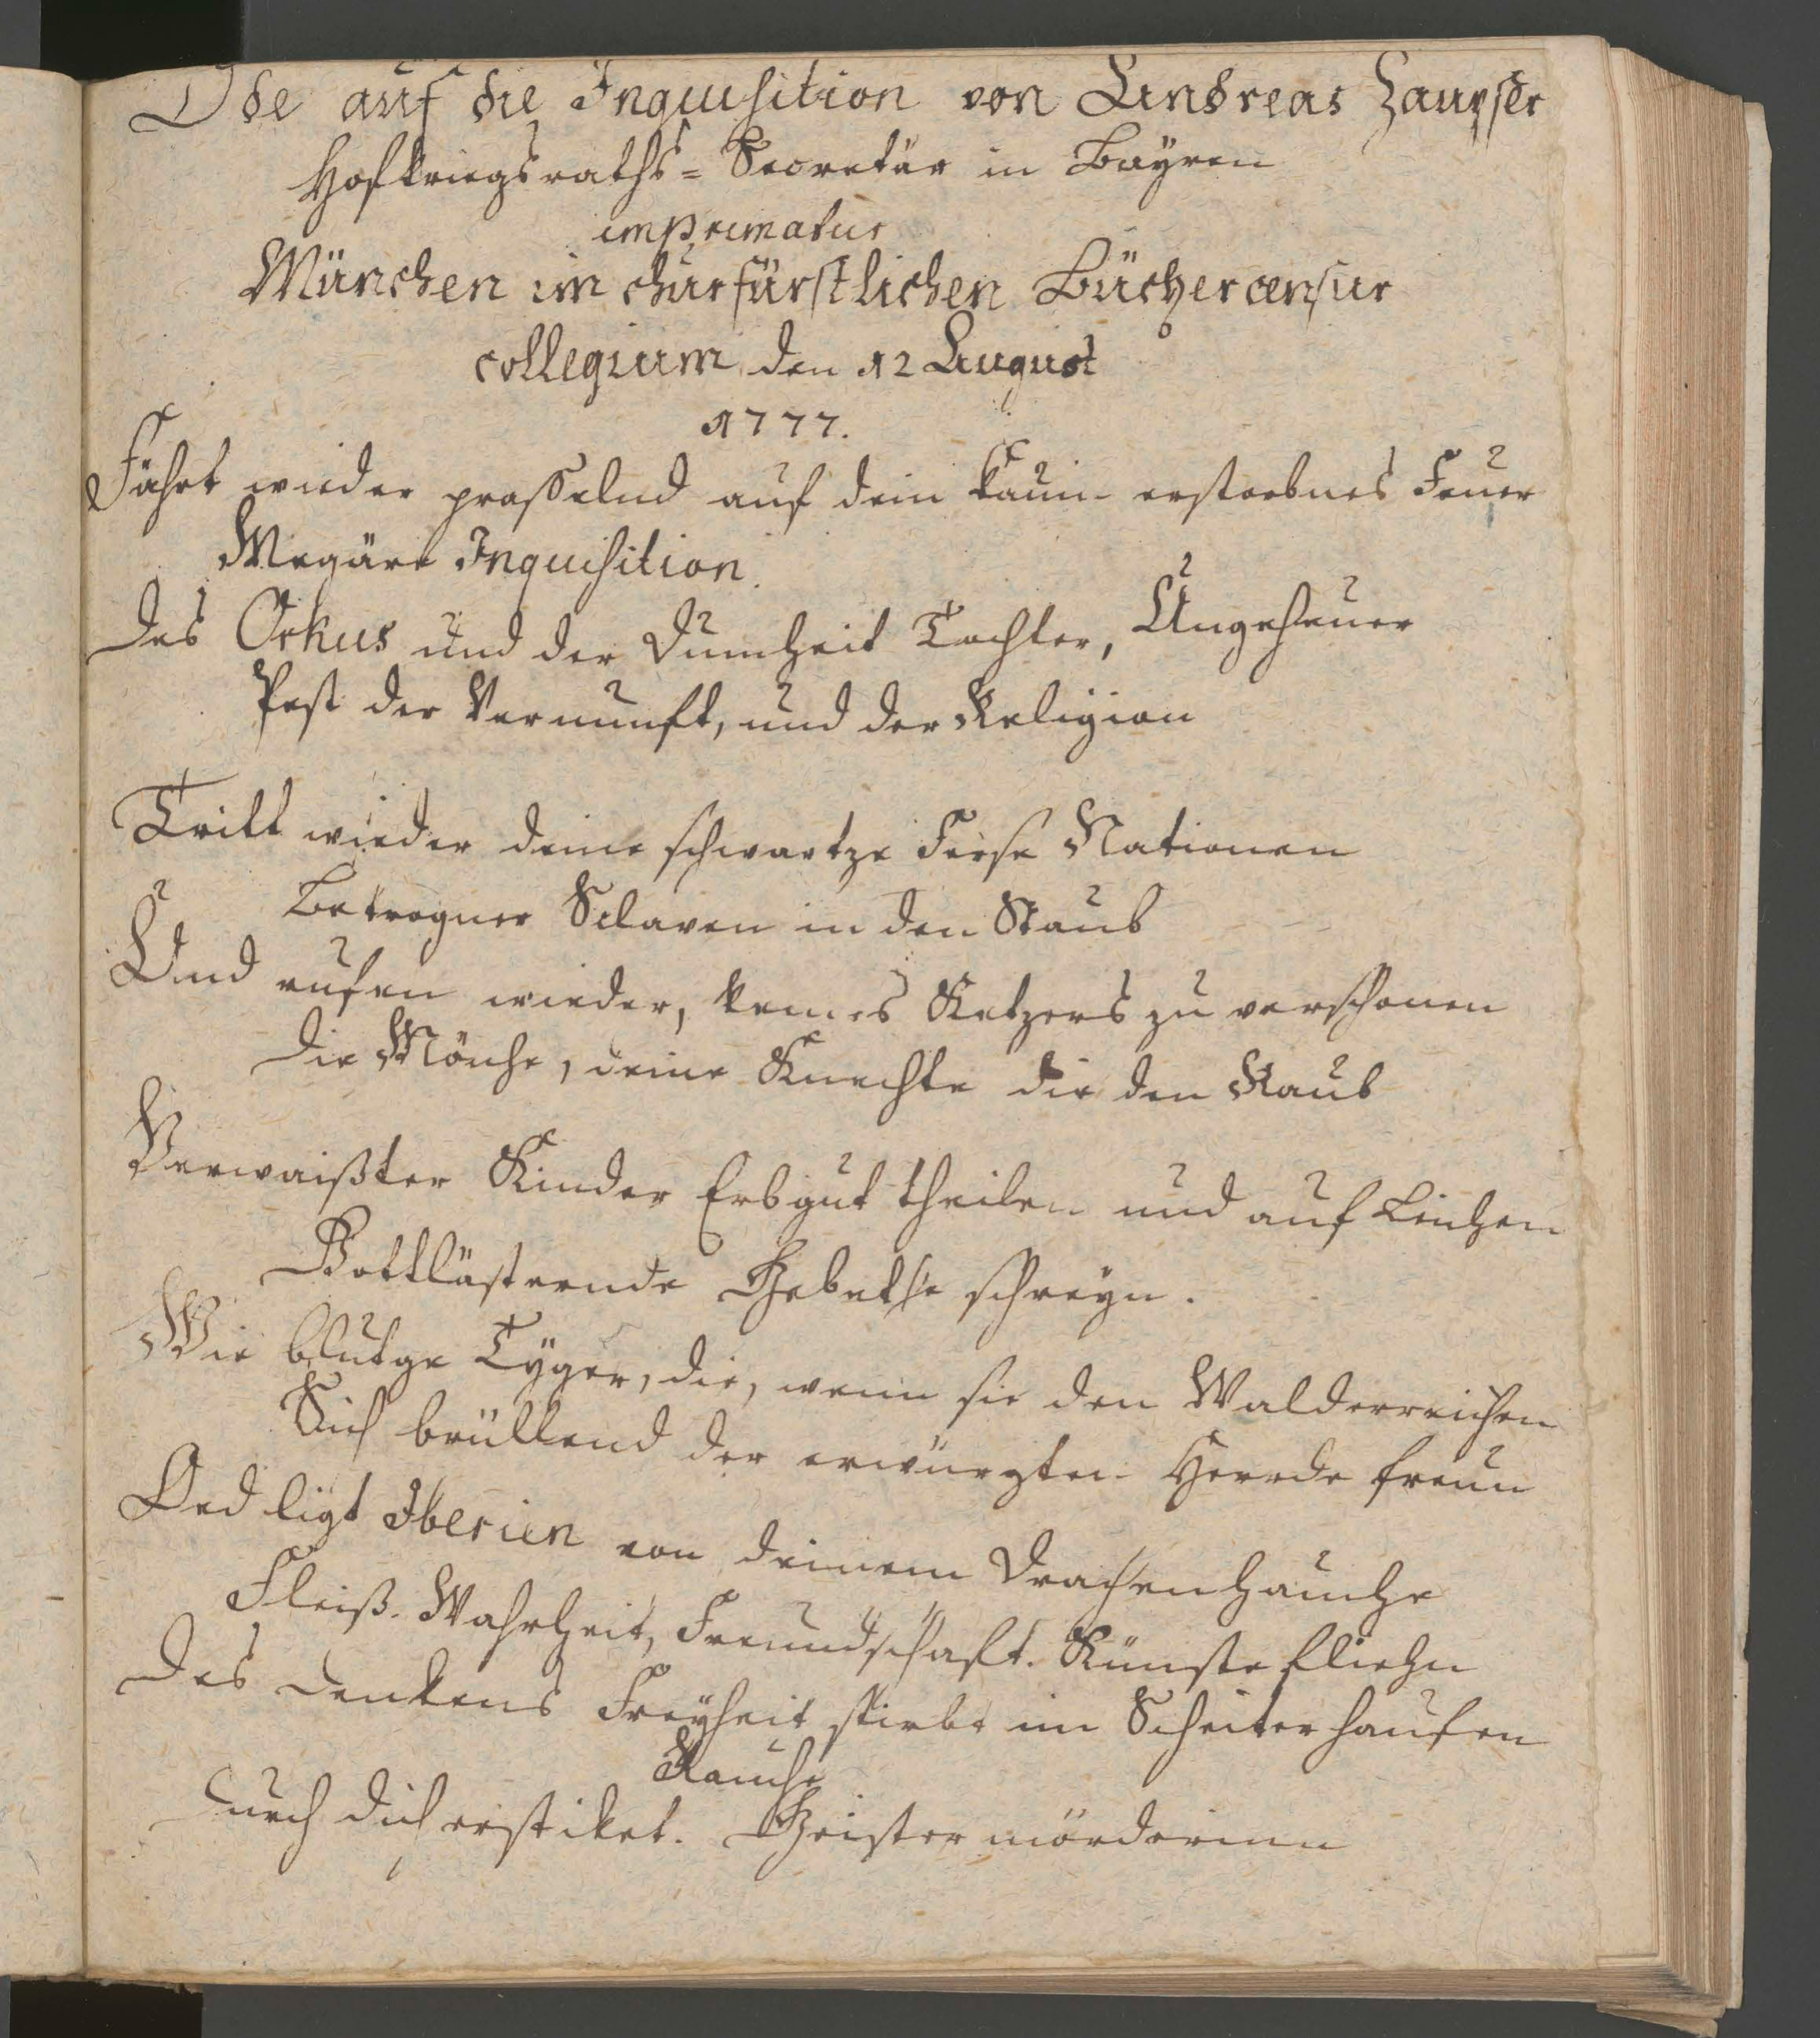 Ode auf die Inquisition von Andreas Zaupser
Hofkriegsraths=Secretär in Bayren
imprimatur
München im churfürstlichen Büchercensur
collegium den 12 August
1777.
Fährt wieder prasselnd auf dein kaum erstorbnes Feuer
Megäre Inquisition.
Des Orkus und der Dumheit Tochter, Ungeheuer
Pest der Vernunft, und der Religion
Tritt wieder deine schwartze Ferse Nationen
Betrogner Sclaven in den Staub
Und rufen wieder, keines Ketzers zu verschonen
Die Mönche, deine Knechte die den Raub
Verwaißter Kinder Erbgut theilen und auf Leichen
Gottlästernde Gebethe schreyn.
Wie blutge Tyger, die, wenn sie den Wald erreichen
Sich brüllend der erwürgten Heerde freun
Oed ligt Iberien von deinem Drachenhauche
Fleiß. Wahrheit, Freundschaft. Künste fliehn
Des Denkens Freyheit stirbt im Scheiterhaufen
Rauche
Durch dich erstiket. Geistermörderinn